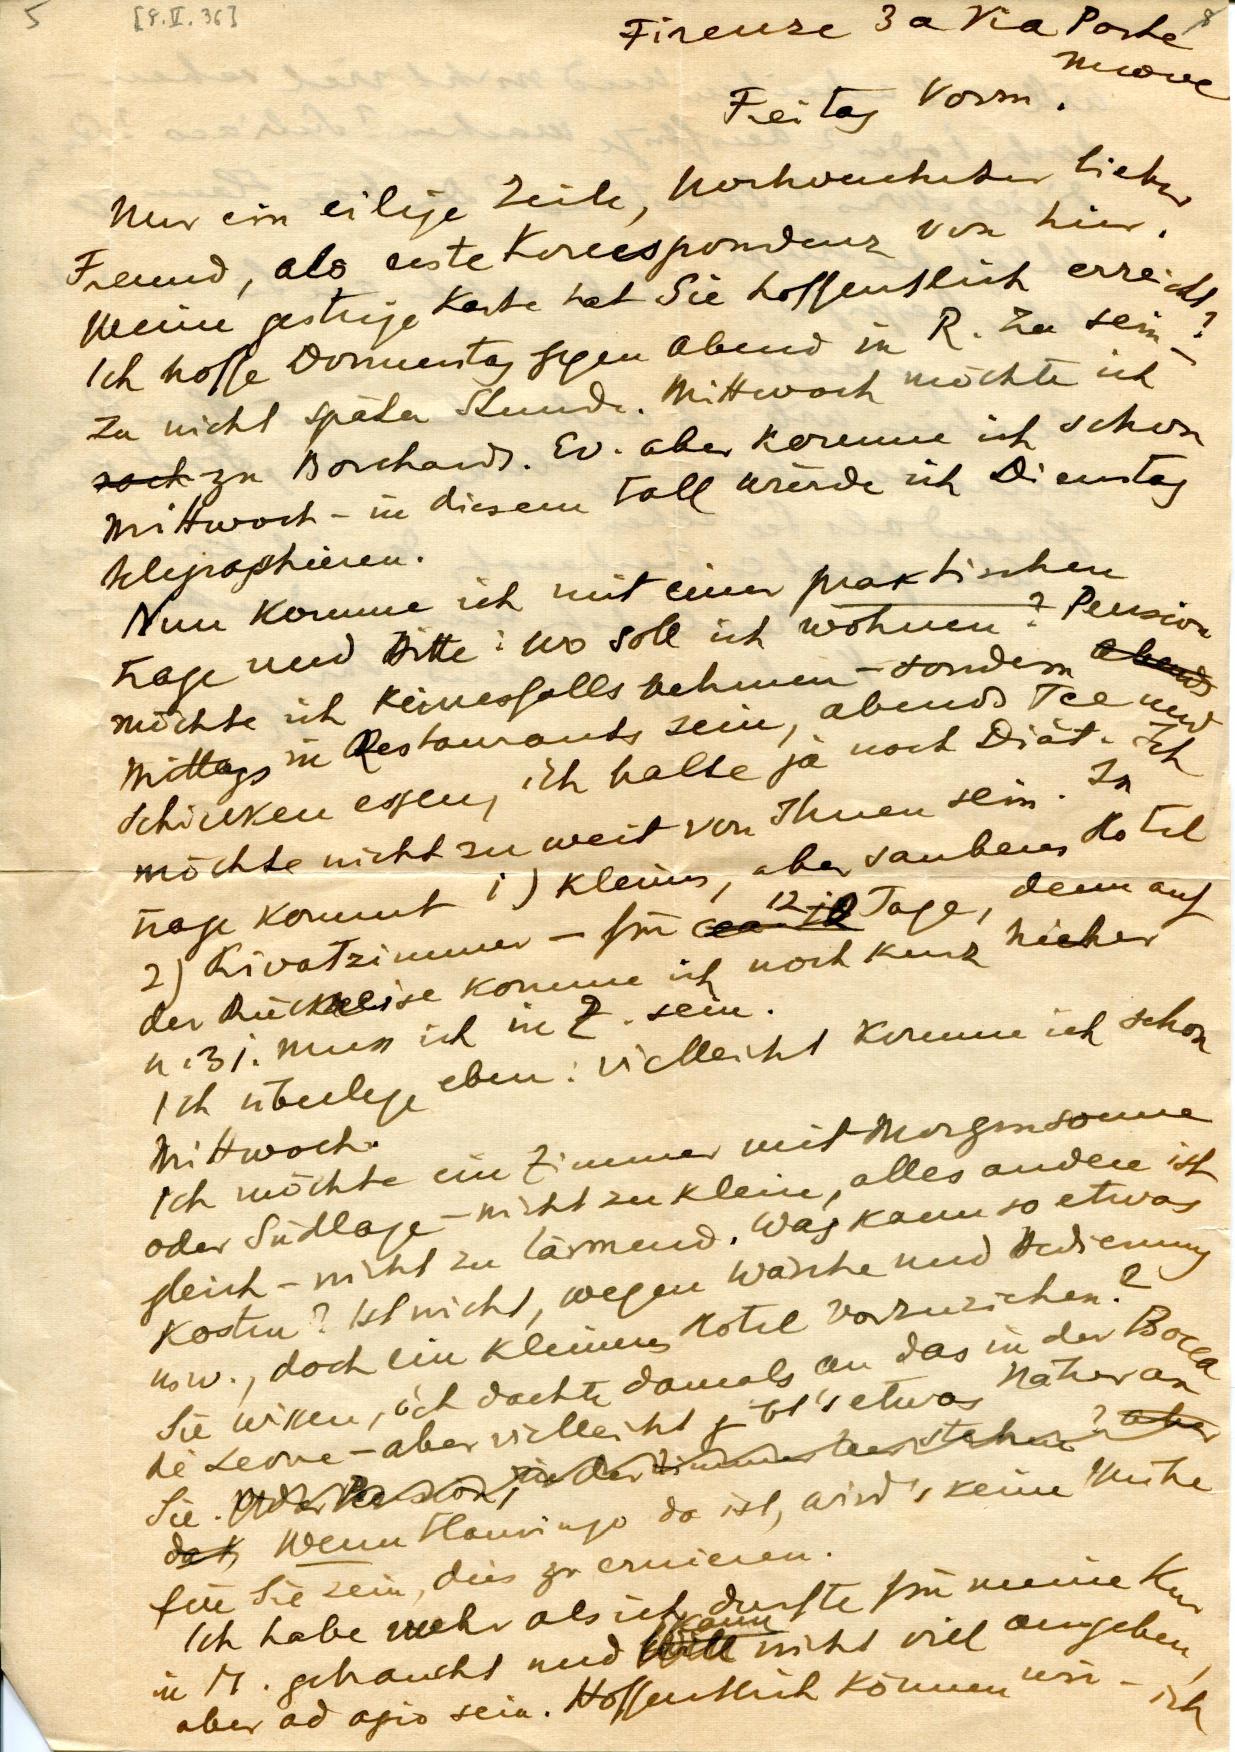 5 [8.V.36] 8
Firenze 3 a Via Porta
nuova
Freitag Vorm.
Nur ein eilige Zeile, hochverehrter lieber
Freund, als erste Korrespondenz von hier.
Meine gestrige Karte hat Sie hoffentlich erreicht?
Ich hoffe Donnerstag gegen Abend in R. zu sein –
zu nicht später Stunde. Mittwoch möchte ich
noch zu Borchardt. Ev. aber komme ich schon
Mittwoch – in diesem Fall würde ich Dienstag
telegraphieren.
Nun komme ich mit einer praktischen
Frage und Bitte: wo soll ich wohnen? Pension
möchte ich keinesfalls nehmen – sondern abends
Mittags in Restaurants sein, abends Tee und
Schinken essen, ich halte ja noch Diät. Ich
möchte nicht zu weit von Ihnen sein. In
Frage kommt 1) kleines, aber sauberes Hotel
2) Privatzimmer – für ca 12 Tage, denn auf
der Rückreise komme ich noch kurz hieher
u. 31. muss ich in Z. sein.
Ich überlege eben: vielleicht komme ich schon
Mittwoch.
Ich möchte ein Zimmer mit Morgensonne
oder Südlage – nicht zu klein, alles andere ist
gleich – nicht zu lärmend. Was kann so etwas
kosten? Ist nicht, wegen Wäsche und Bedienung
usw., doch ein kleines Hotel vorzuziehen?
Sie wissen, ich dachte damals an das in der Bocca
di Leone – aber vielleicht gibt's etwas näher an
Sie. Oder Pension, in der Zimmer leer stehen? aber
dak Wenn Flamingo da ist, wird's keine Mühe
für Sie sein, dies zu eruieren.
Ich habe mehr als ich durfte für meine Kur
in M. gebraucht und will kann nicht viel ausgeben,
aber ad agio sein. Hoffentlich können wir – ich